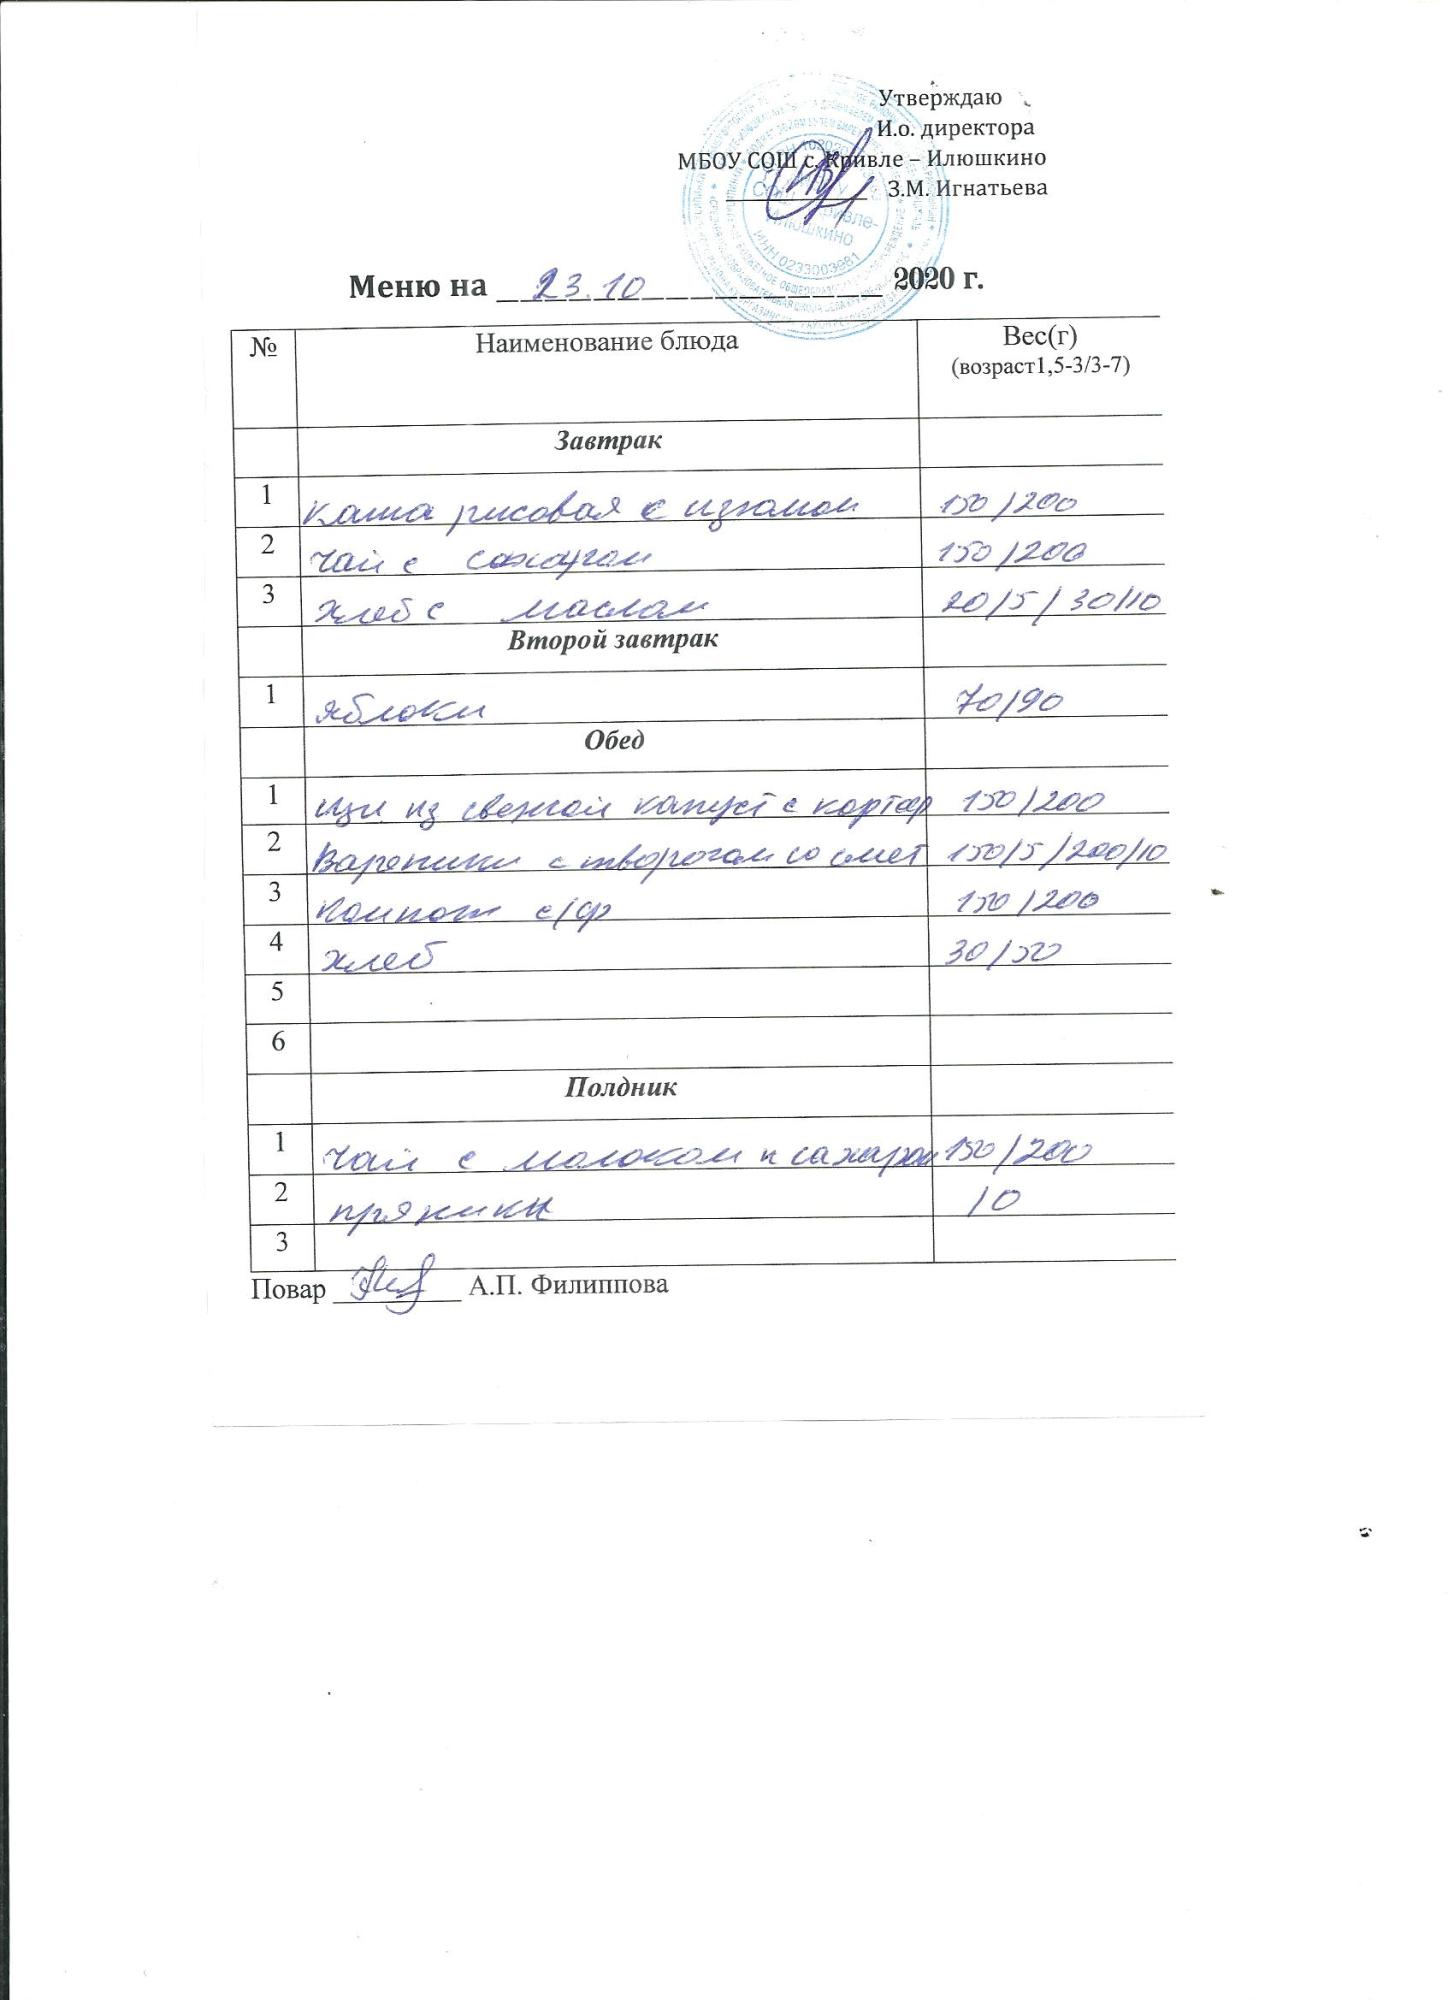 Утверждаю
И.о. директора
МБОУ СОШ с. Кривле – Илюшкино
З.М. Игнатьева
ИНН 0233003981
Меню на 23.10 2020 г.
№ Наименование блюда Вес(г)
(возраст1,5-3/3-7)
Завтрак
1 Каша рисовая с изюмом 150/200
2 Чай с сахаром 150/200
3 Хлеб с маслом 20/5/30/10
Второй завтрак
1 Яблоки 70/90
Обед
1 Щи из свежей капуст с картоф 150/200
2 Вареники с творогом со смет 150/5/200/10
3 Компот с/ф 150/200
4 Хлеб 30/50
5
6
Полдник
1 Чай с молоком и сахаром 150/200
2 пряники 10
3
Повар А.П. Филиппова